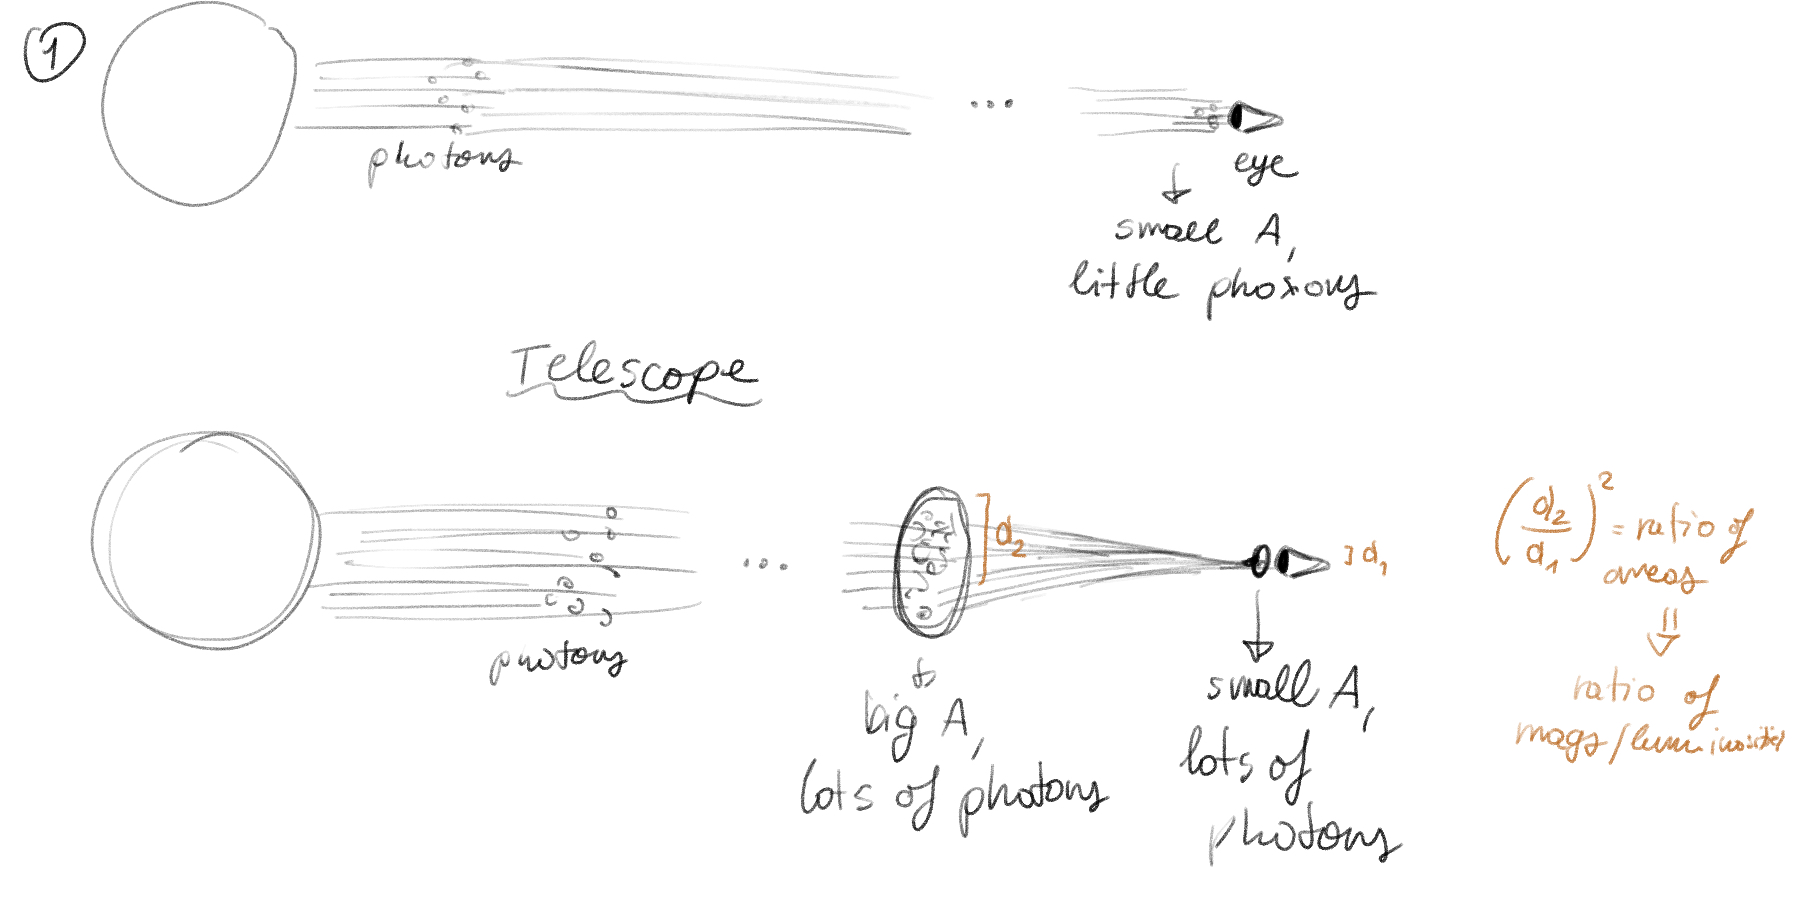 1
photons
...
eye
small A,
little photons
Telescope
photons
...
d₂
d₁
big A,
lots of photons
small A,
lots of
photons
(d₂/d₁)² = ratio of
areas
⇓
ratio of
mags/luminosities